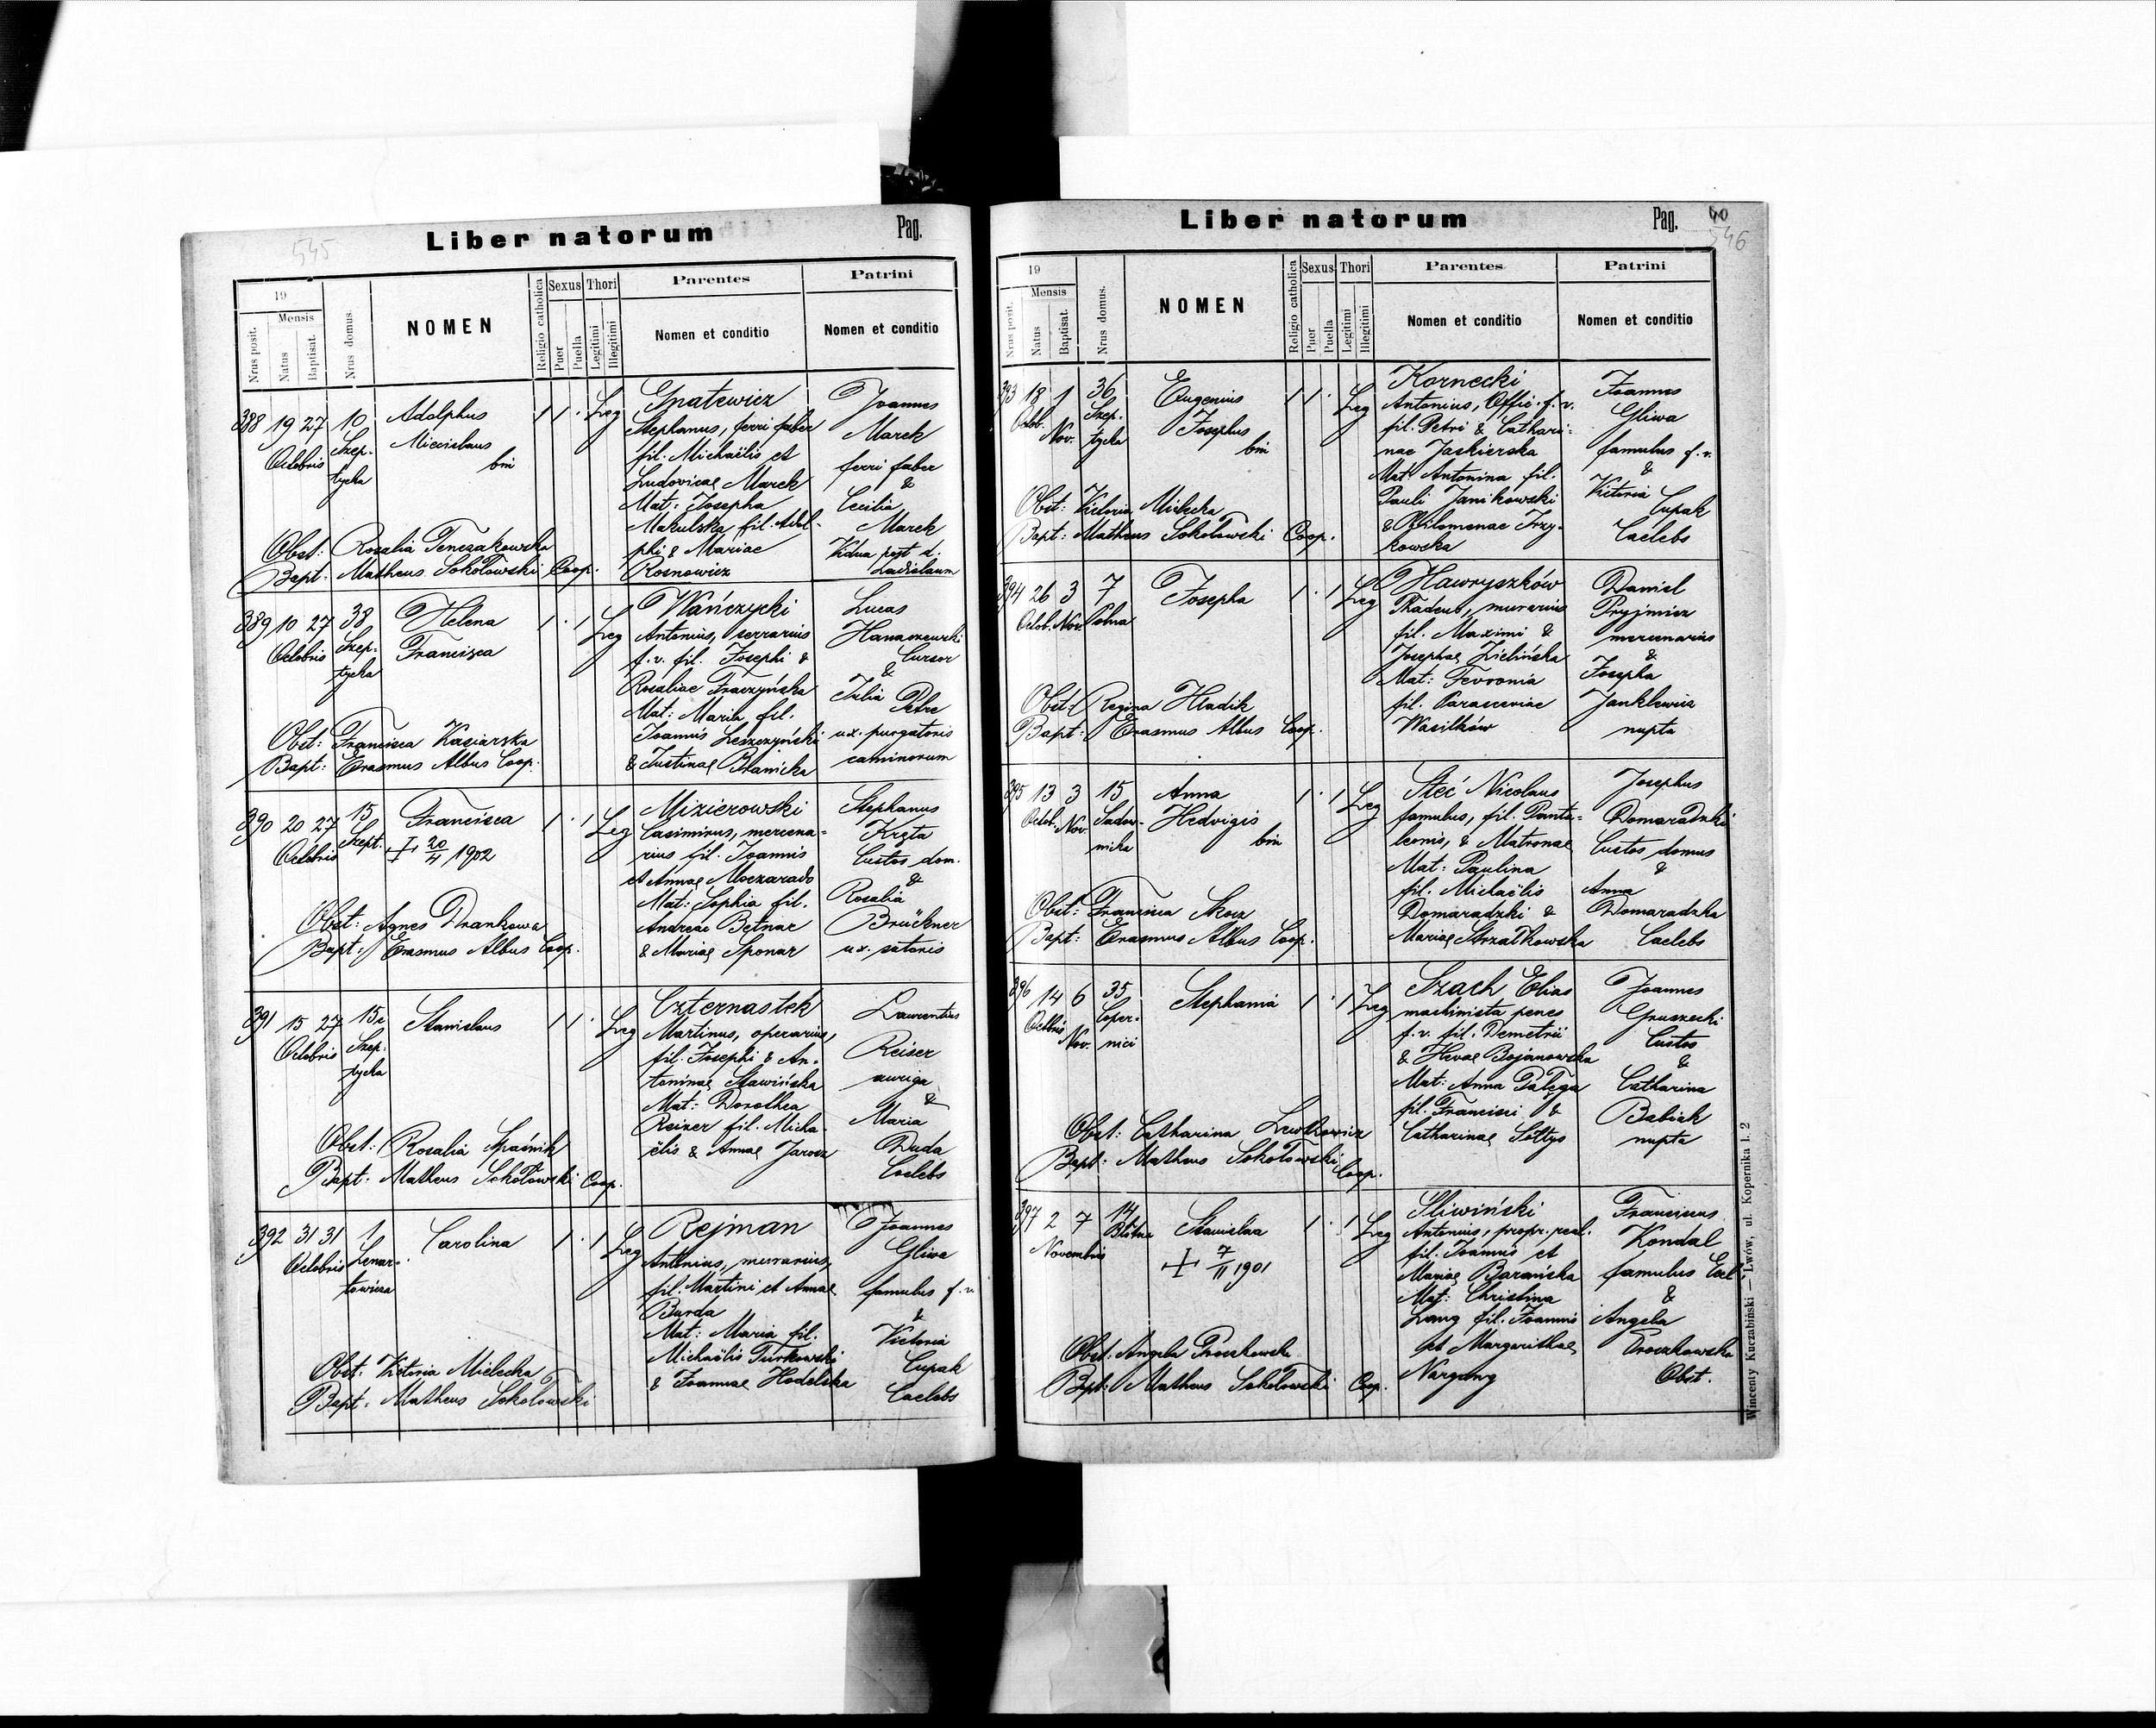 545
Liber natorum
Pag.
19
Mensis
Nrus posit.
Natus
Baptisat.
Nrus domus.
NOMEN
Religio catholica
Sexus
Puer
Puella
Thori
Legitimi
Illegitimi
Parentes
Nomen et conditio
Patrini
Nomen et conditio
388 19 27 10
Octobris
Szep-
tycka
Adolphus
Miecislaus
bin
1 1 · Leg
Gnatewicz
Stephanus, ferri faber
fil. Michaëlis et
Ludovicae Marek
Mat: Josepha
Makulska fil. Adol-
phi & Mariae
Rosnowicz
Joannes
Marek
ferri faber
&
Cecilia
Marek
Vidua post d.
Ladislaum
Obst: Rosalia Tenczakowska
Bapt: Matheus Sokołowski Coop.
389 10 27 38
Octobris
Szep-
tycka
Helena
Francisca
1 · 1 Leg
Wańczycki
Antonius, serrarius
f. v. fil. Josephi &
Rosaliae Fraczyńska
Mat: Maria fil.
Joannis Leszczyński
& Justinae Branicka
Lucas
Hanaszewski
Cursor
&
Julia Petre
ux. purgatoris
caminorum
Obst: Francisca Kasiarska
Bapt: Erasmus Albus Coop.
390 20 27 15
Octobris
Szept.
Francisca
+ 20/4 1902
1 · 1 Leg
Mizierowski
Casimirus, mercena-
rius fil. Joannis
et Annae Moczarado
Mat: Sophia fil.
Andreae Betnar
& Mariae Sponar
Stephanus
Kręta
Custos dom.
&
Rosalia
Brückner
ux. satoris
Obst: Agnes Drankowa
Bapt: Erasmus Albus Coop.
391 15 27 13a
Octobris
Szep-
tycka
Stanislaus
1 1 · Leg
Czternastek
Martinus, operarius,
fil. Josephi & An-
toninae Sławińska
Mat: Dorothea
Reizer fil. Micha-
ëlis & Annae Jarosz
Laurentius
Reiser
auriga
&
Maria
Duda
Coelebs
Obst: Rosalia
Bapt: Matheus Sokołowski Coop.
392 31 31 1
Octobris
Lenar-
towicza
Carolina
1 · 1 Leg
Rejman
Antonius, murarius,
fil. Martini et Annae
Burda
Mat: Maria fil.
Michaëlis Turkowski
& Joannae Hodelska
Joannes
Gliwa
famulus f. v.
&
Victoria
Cupak
Caelebs
Obst: Victoria Mielecka
Bapt: Matheus Sokołowski
Liber natorum
Pag. 40
546
19
Mensis
Nrus posit.
Natus
Baptisat.
Nrus domus.
NOMEN
Religio catholica
Sexus
Puer
Puella
Thori
Legitimi
Illegitimi
Parentes
Nomen et conditio
Patrini
Nomen et conditio
393 18 1 36
Octob.
Nov.
Szep-
tycka
Eugenius
Josephus
bin
1 1 · Leg
Kornecki
Antonius, Offic. f. v.
fil. Petri & Cathari-
nae Jaskierska
Mat: Antonina fil.
Pauli Janikowski
& Philomenae Trzy-
kowska
Joannes
Gliwa
famulus f. v.
&
Victoria
Cupak
Caelebs
Obst: Victoria Mielecka
Bapt: Matheus Sokołowski Coop.
394 26 3 7
Octob. Nov. Polna
Josepha
1 · 1 Leg
Hawryszków
Thadeus, murarius
fil. Maximi &
Josephae Zielińska
Mat: Fevronia
fil. Parasceviae
Wasilków
Daniel
Pryjmicz
mercenarius
&
Josepha
Janklewicz
nupta
Obst: Regina Hladik
Bapt: Erasmus Albus Coop.
395 13 3 15
Octob. Nov.
Sadow-
nicka
Anna
Hedvigis
bin
1 · 1 Leg
Steć Nicolaus
famulus, fil. Panta-
leonis, & Matronae
Mat: Paulina
fil. Michaëlis
Domaradzki &
Mariae Strzałkowska
Josephus
Domaradzki
Custos domus
&
Anna
Domaradzka
Caelebs
Obst: Francisca Skocz
Bapt: Erasmus Albus Coop.
396 14 6 35
Octobris
Nov.
Coper-
nici
Stephania
1 · 1 Leg
Szach Elias
machinista penes
f. v. fil. Demetrii
& Hevae Bojanowska
Mat: Anna Pałęga
fil. Francisci &
Catharinae Sołtys
Joannes
Gruszecki
Custos
&
Catharina
Babiak
nupta
Obst: Catharina Lewkowicz
Bapt: Matheus Sokołowski
Coop.
397 2 7 14
Novembris
Błotna
Stanislaa
+ 7/11 1901
1 · 1 Leg
Śliwiński
Antonius, propr. real.
fil. Joannis et
Mariae Barańska
Mat: Christina
Lang fil. Joannis
et Margarithae
Nargang
Franciscus
Kondal
famulus Cael
&
Angela
Proczkowska
Obst.
Obst: Angela Proczkowska
Bapt: Matheus Sokołowski Coop.
Wincenty Kuczabiński — Lwów, ul. Kopernika l. 2